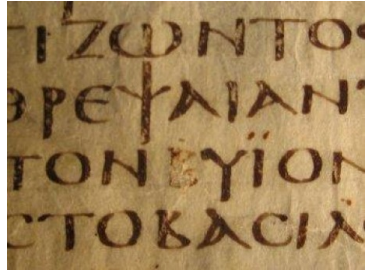 ΤΙΖΩΝΤΟΣ
ΘΡΕΨΑΙΑΝΤ
ΤΟΝ ΥΪΟΝ
ϹΤΟΒΑϹΙΛ